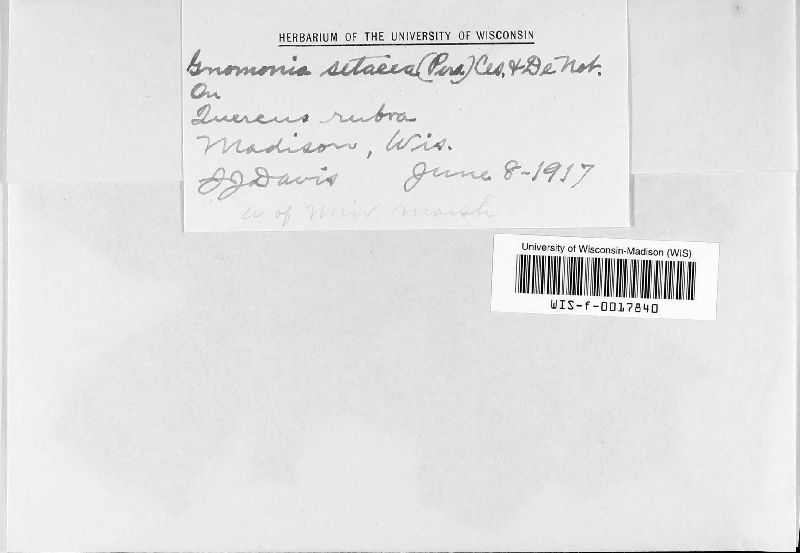 HERBARIUM OF THE UNIVERSITY OF WISCONSIN
Gnomonia setacea (Pers.) Ces. & De Not.
On
Quercus rubra
Madison, Wis.
JJDavis June 8-1917
W of Univ. Marsh
University of Wisconsin-Madison (WIS)
WIS-f-0017840